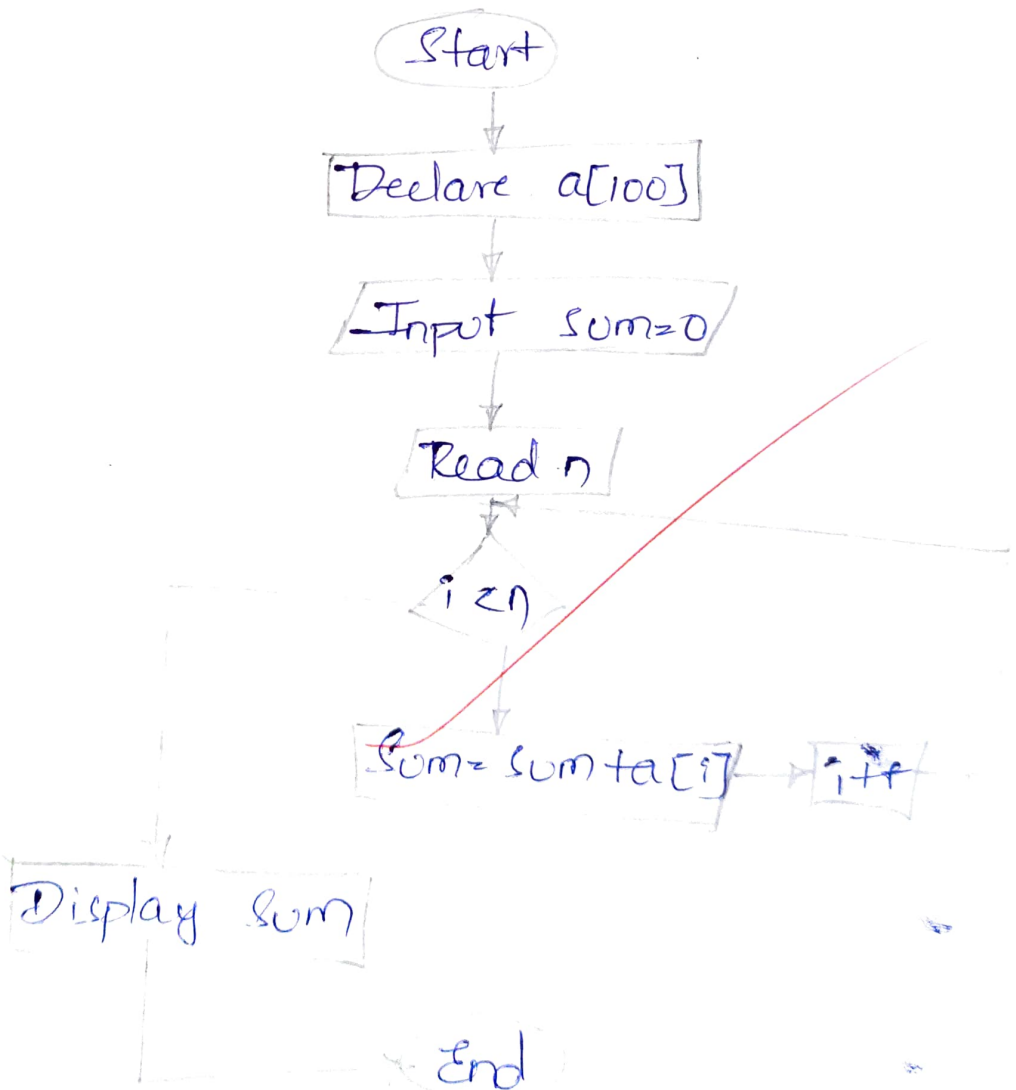 Start
Declare a[100]
Input sum=0
Read n
i<n
Sum= sum+a[i]
i++
Display sum
End